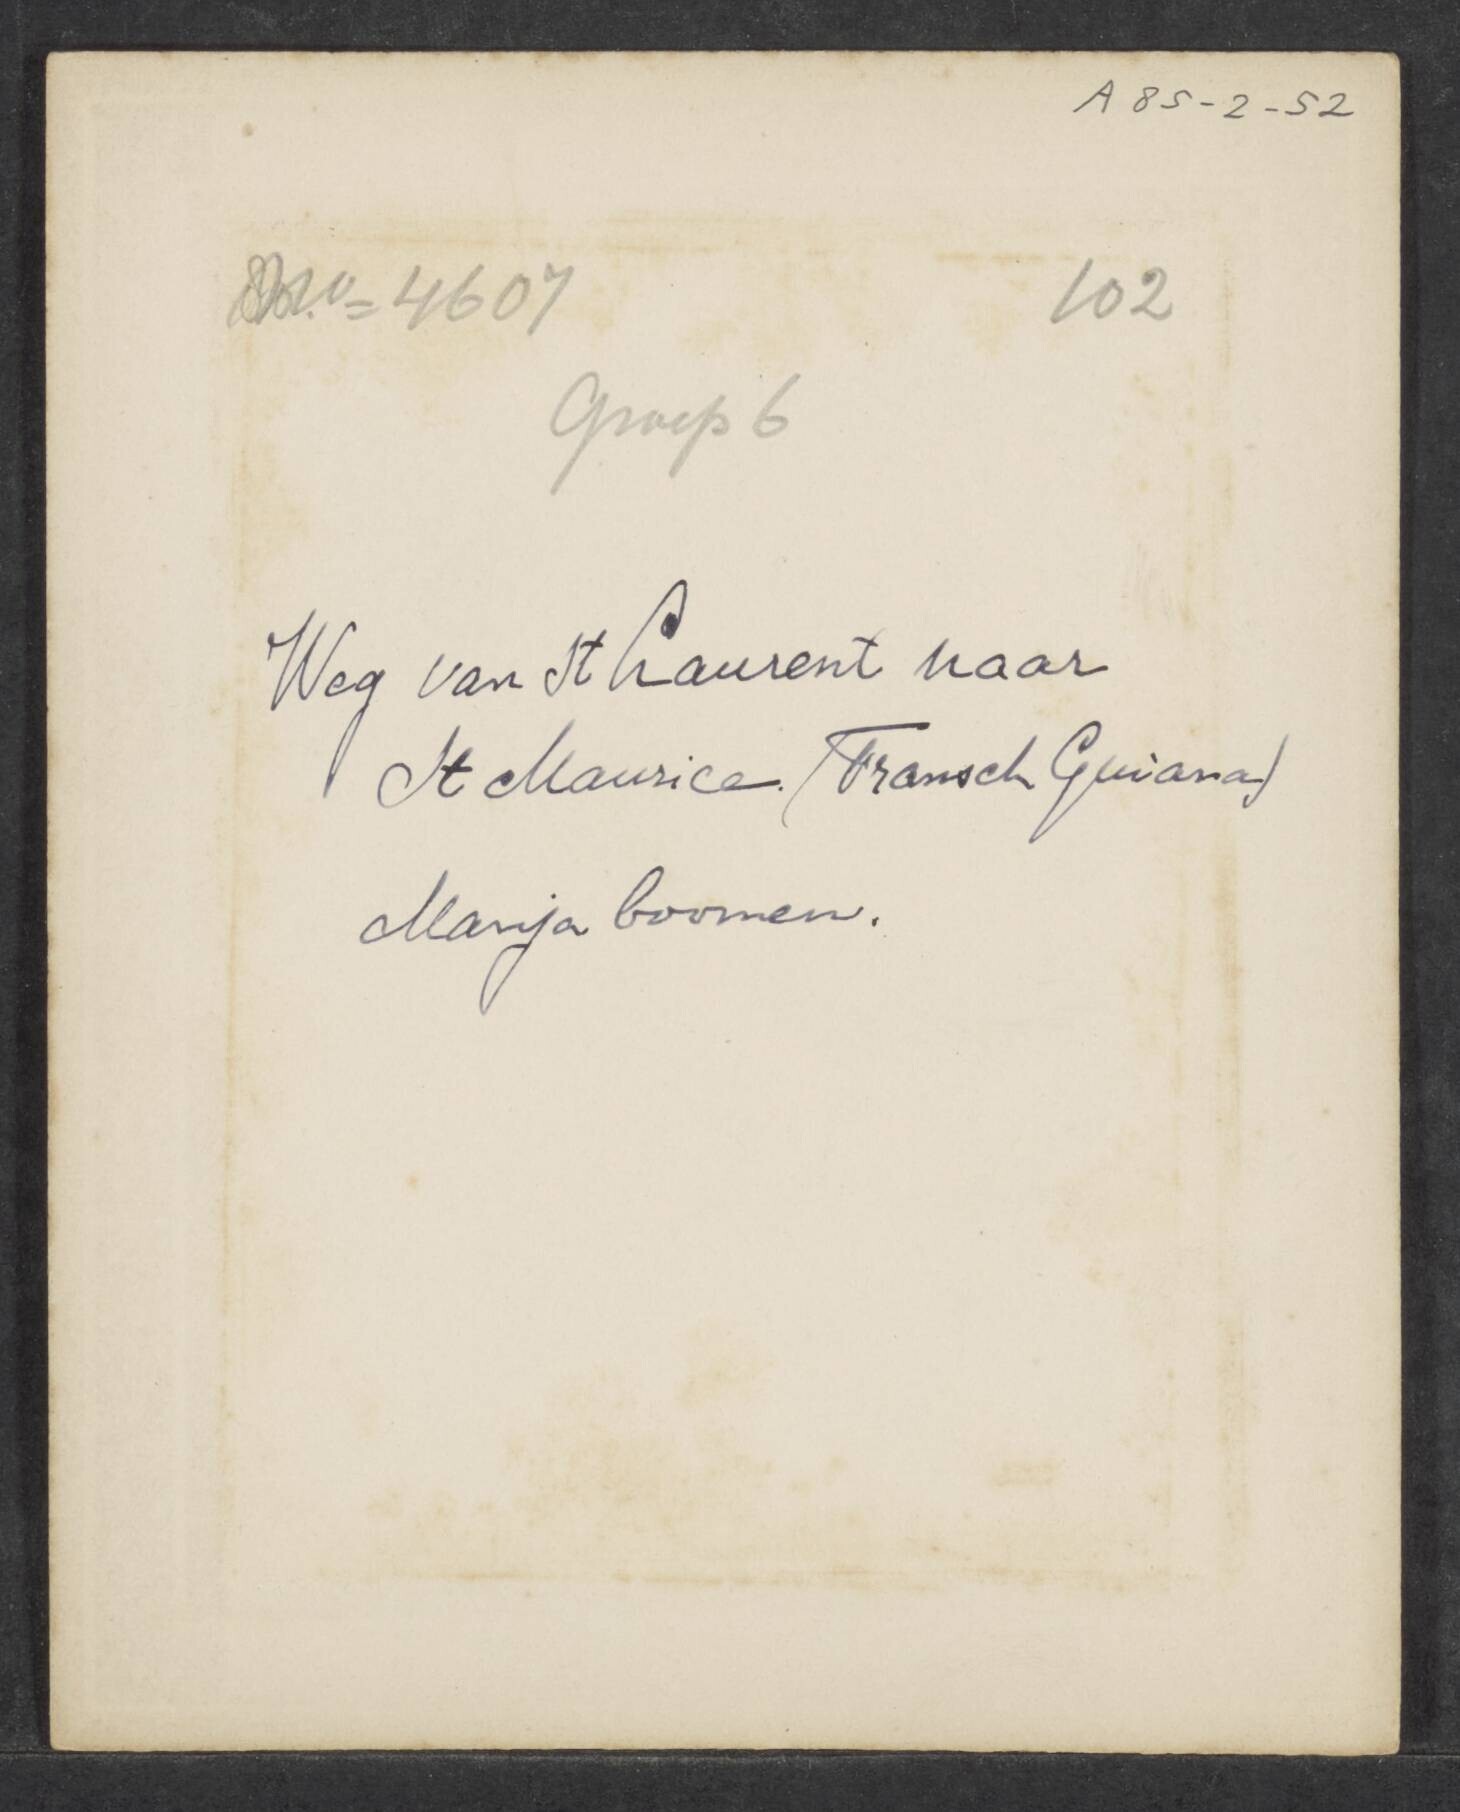 A 85-2-52
No= 4607 102
Groep 6
Weg van St Laurent naar
St Maurice. (Fransch Guiana)
Manja boomen.